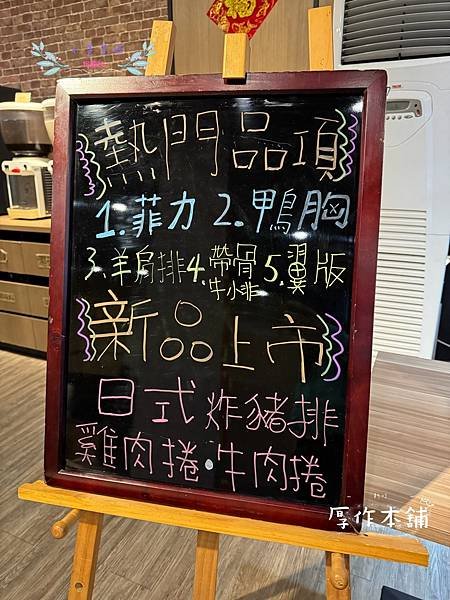 熱門品項
1.菲力 2.鴨胸
3.羊肩排 4.帶骨牛小排 5.翼版
新品上市
日式炸豬排
雞肉捲·牛肉捲
厚作本舖